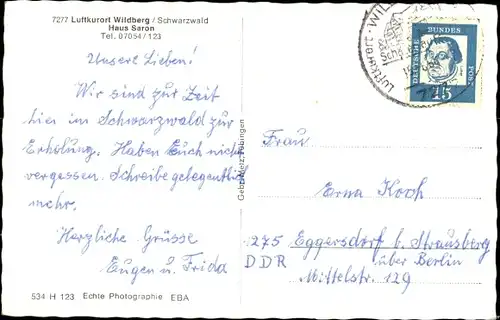 7277 Luftkurort Wildberg / Schwarzwald
Haus Saron
Tel. 07054/123
Unsere Lieben!
Wir sind zur Zeit
hier im Schwarzwald zur
Erholung. Haben Euch nicht
vergessen. Schreibe gelegentlich
mehr.
Herzliche Grüsse
Eugen u. Frida
534 H 123 Echte Photographie EBA
Gebr. Metz, Tübingen
Luftkurort · WILD
DEUTSCHE BUNDESPOST
15
Frau
Erna Koch
275 Eggersdorf b. Strausberg
DDR über Berlin
Mittelstr. 129